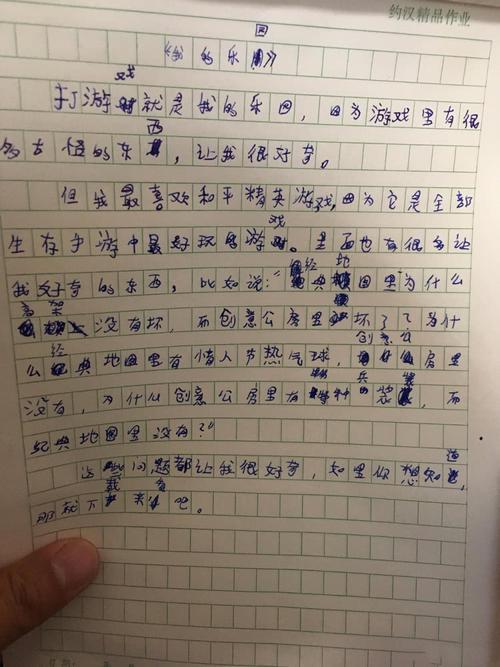 约汉精品作业
《我的乐园》
打游戏就是我的乐园，因为游戏里有很
多古怪的东西，让我很好奇。
但我最喜欢和平精英游戏，因为它是全部
生存手游中最好玩的游戏。里面也有很多让
我好奇的东西，比如说：“经典地图里为什么
高架没有坏，而创意公房里坏了？为什
么经典地图里有情人节热气球，创意公房里
没有，为什么创意公房里有兵装，而
纪典地图里没有？”
这些问题都让我很好奇，如果你想知道，
那就下载来看吧。